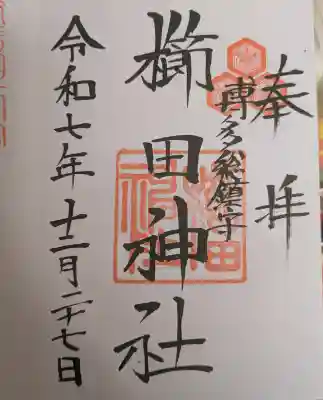 奉拝
博多総鎮守
櫛田神社
令和七年十二月二十七日